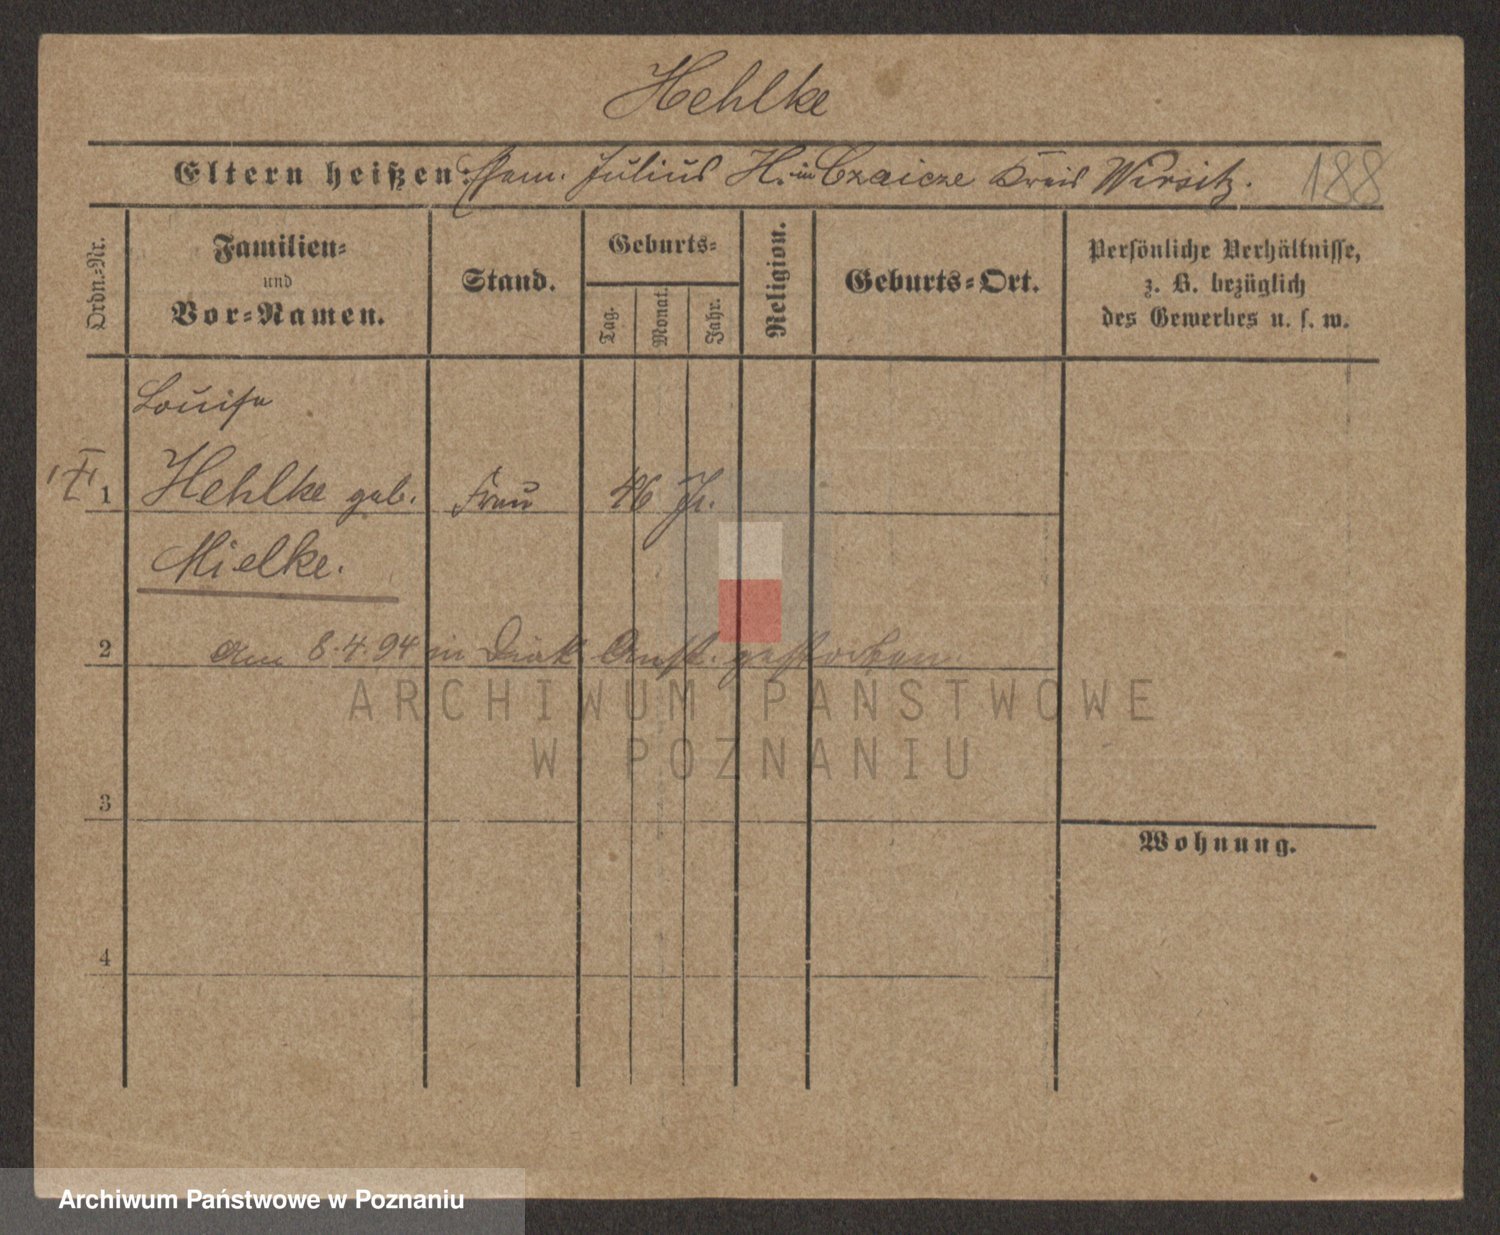 Hehlke
Eltern heißen: Julius H. in Czaicze Kreis Wirsitz. 188
Ordn.-Nr.
Familien-
und
Vor-Namen.
Stand.
Geburts-
Tag.
Monat.
Jahr.
Religion.
Geburts-Ort.
Persönliche Verhältnisse,
z. B. bezüglich
des Gewerbes u. s. w.
Louise
1 Hehlke geb. Frau 46 Jr.
Mielke.
2 am 8.4.94 in Diak. Anst. gestorben.
ARCHIWUM PAŃSTWOWE
W POZNANIU
3
Wohnung.
4
Archiwum Państwowe w Poznaniu